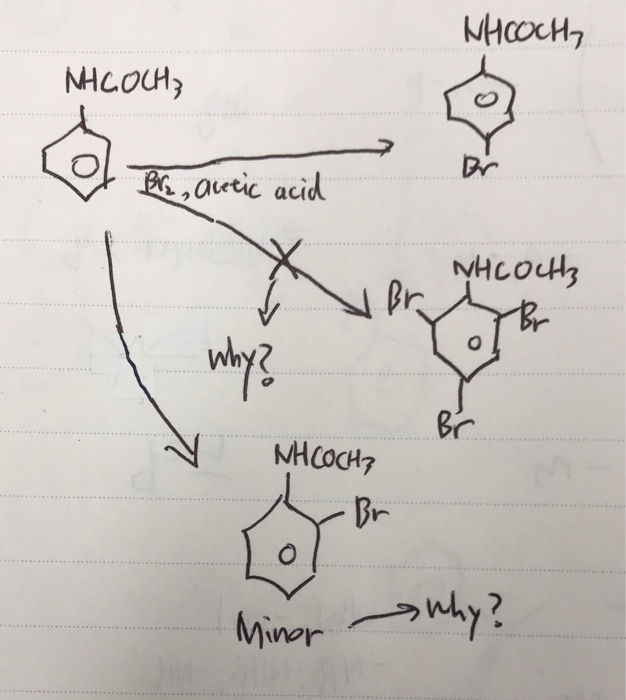 NHCOCH3
NHCOCH3
Br2, acetic acid
Br
NHCOCH3
Br
Br
Why?
Br
NHCOCH3
Br
Minor
Why?